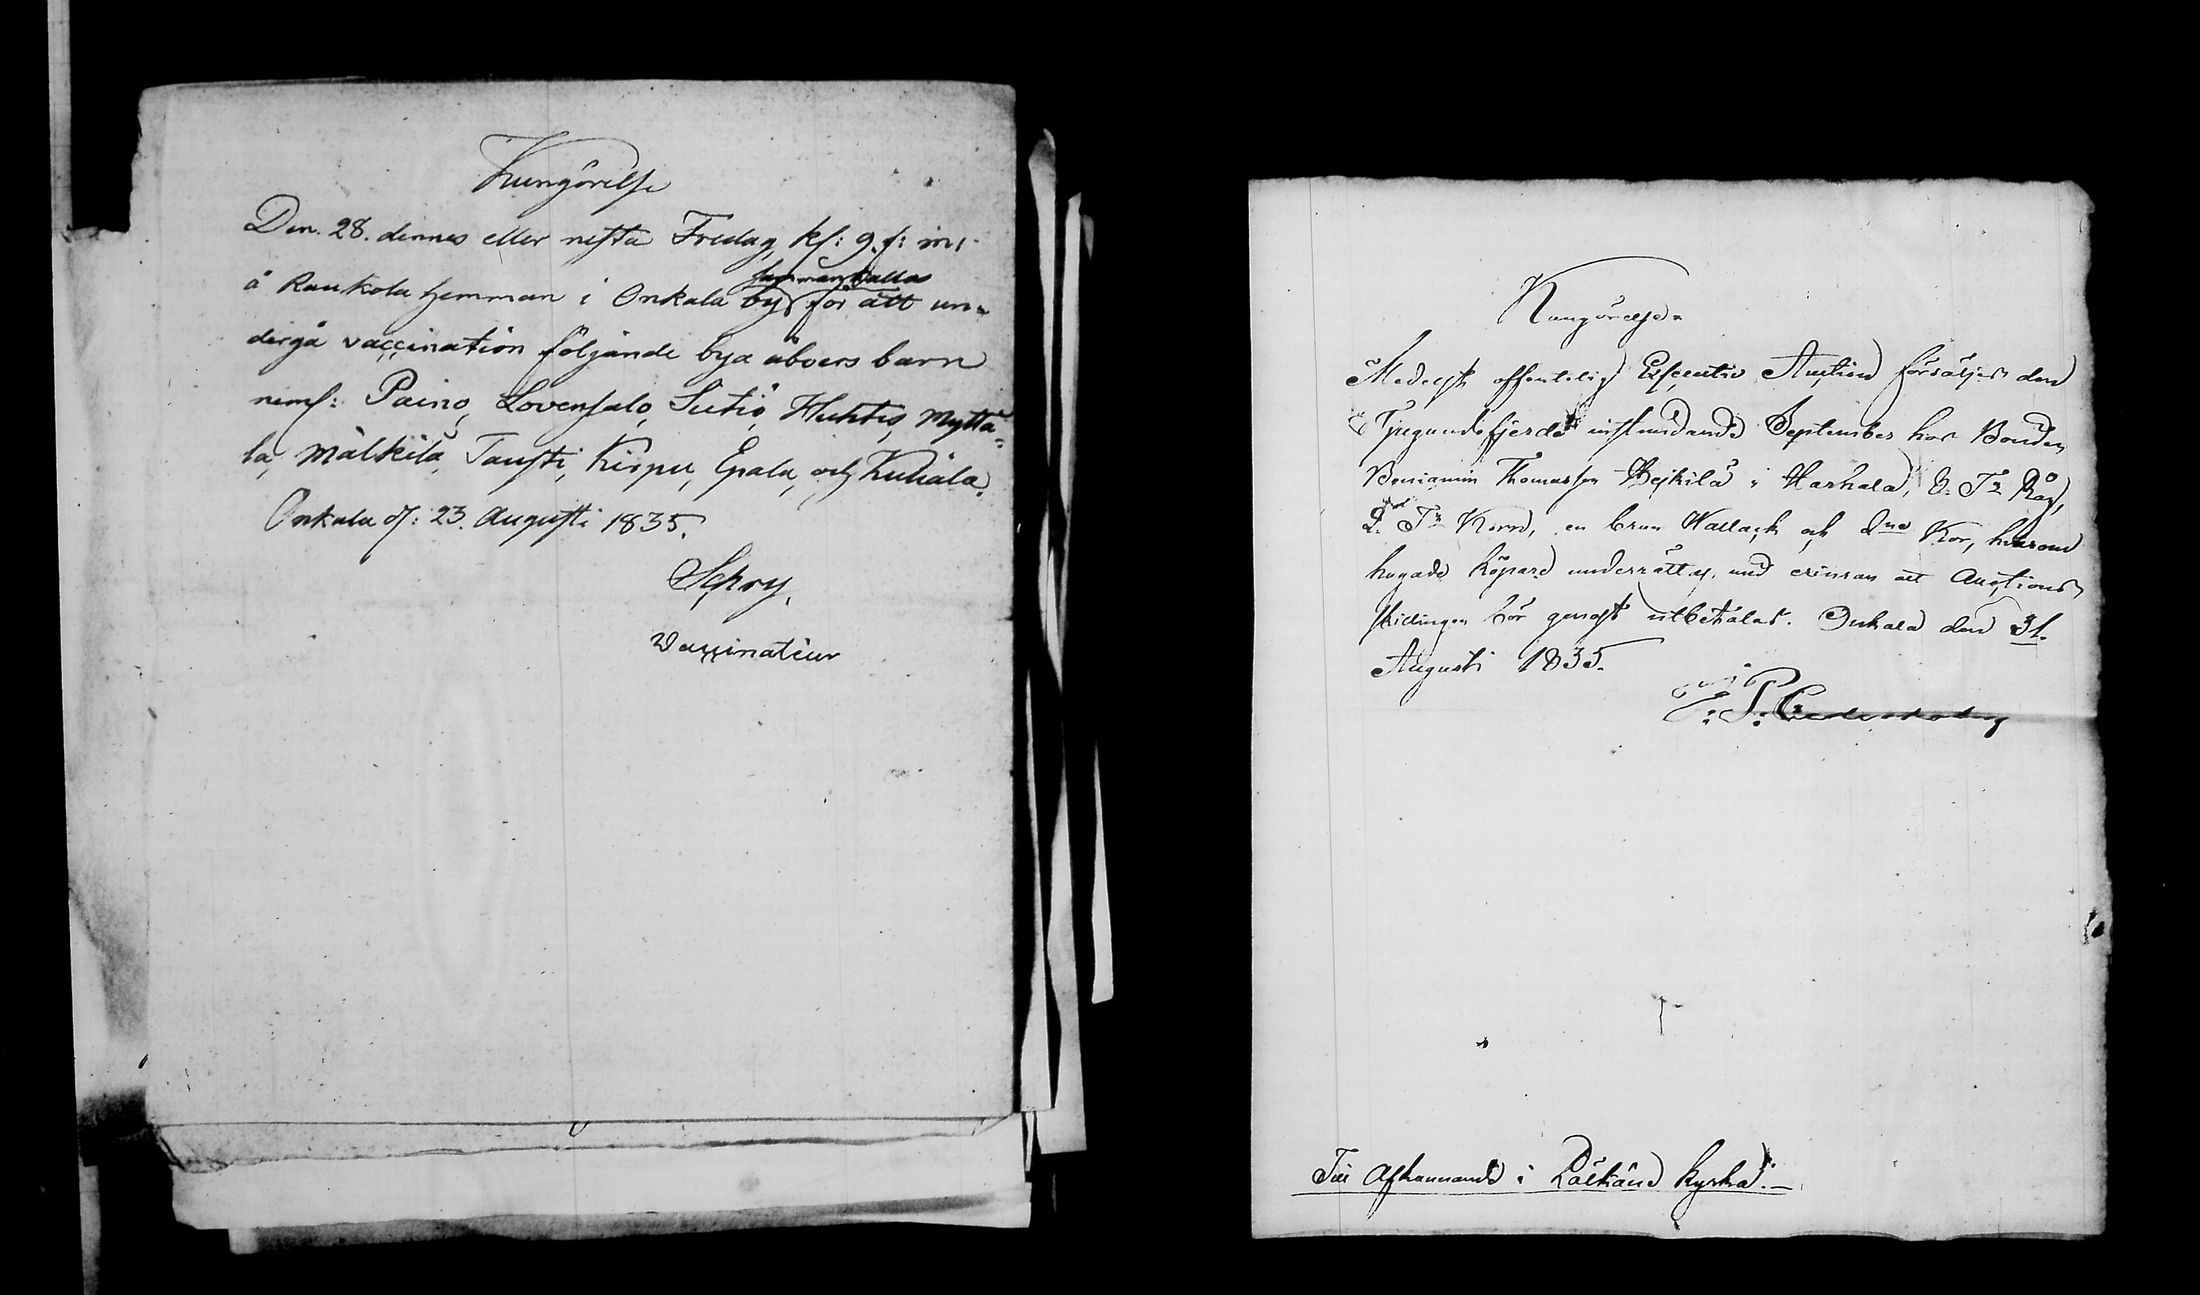 Kungörelse
Den. 28. dennes eller nesta Fredag, kl: 9. f: m:
å Raukola hemman i Onkala by sammankallas för att un-
dergå vaccination följande bya åboers barn
neml: Paino, Lovensalo, Sutio, Huhtis, Myttä-
lä, Mälkilä, Tausti, Kirpu, Epala, och Kuliala.
Onkala d: 23. Augusti 1835.
Schry,
Vaccinateur
Kungörelse
Medelst offentelig Executiv Auction försäljes den
Tjugundefjerde instundande September hos Bonden
Beniamin Thomasson Heikkilä i Harhala, 6. Tr Råg,
2. Tr Korn, en brun Wallack och 2ne Kor, hvarom
hugade köpare underrättas, med erinran att Auctions
skillingen bör genast utbetalas. Onkala den 31.
Augusti 1835.
Till Afkunnande i Pälkäne kyrka.